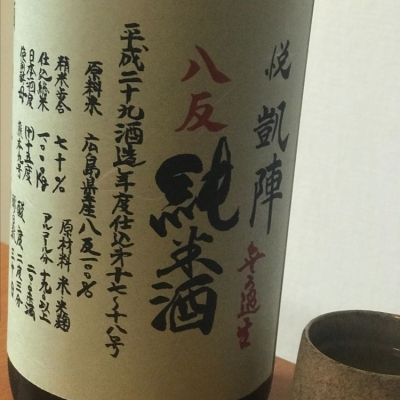 悦凱陣
無ろ過生
純米酒
八反
平成二十九酒造年度仕込第十七〜十八号
原料米 広島県産八反一〇〇%
精米歩合 七十% 原材料 米 米麹
仕込総米 アルコール分 十九.〇以上二〇.〇未満
日本酒度 (+)十五度 酸度 二.三分
使用酵母 熊本九号